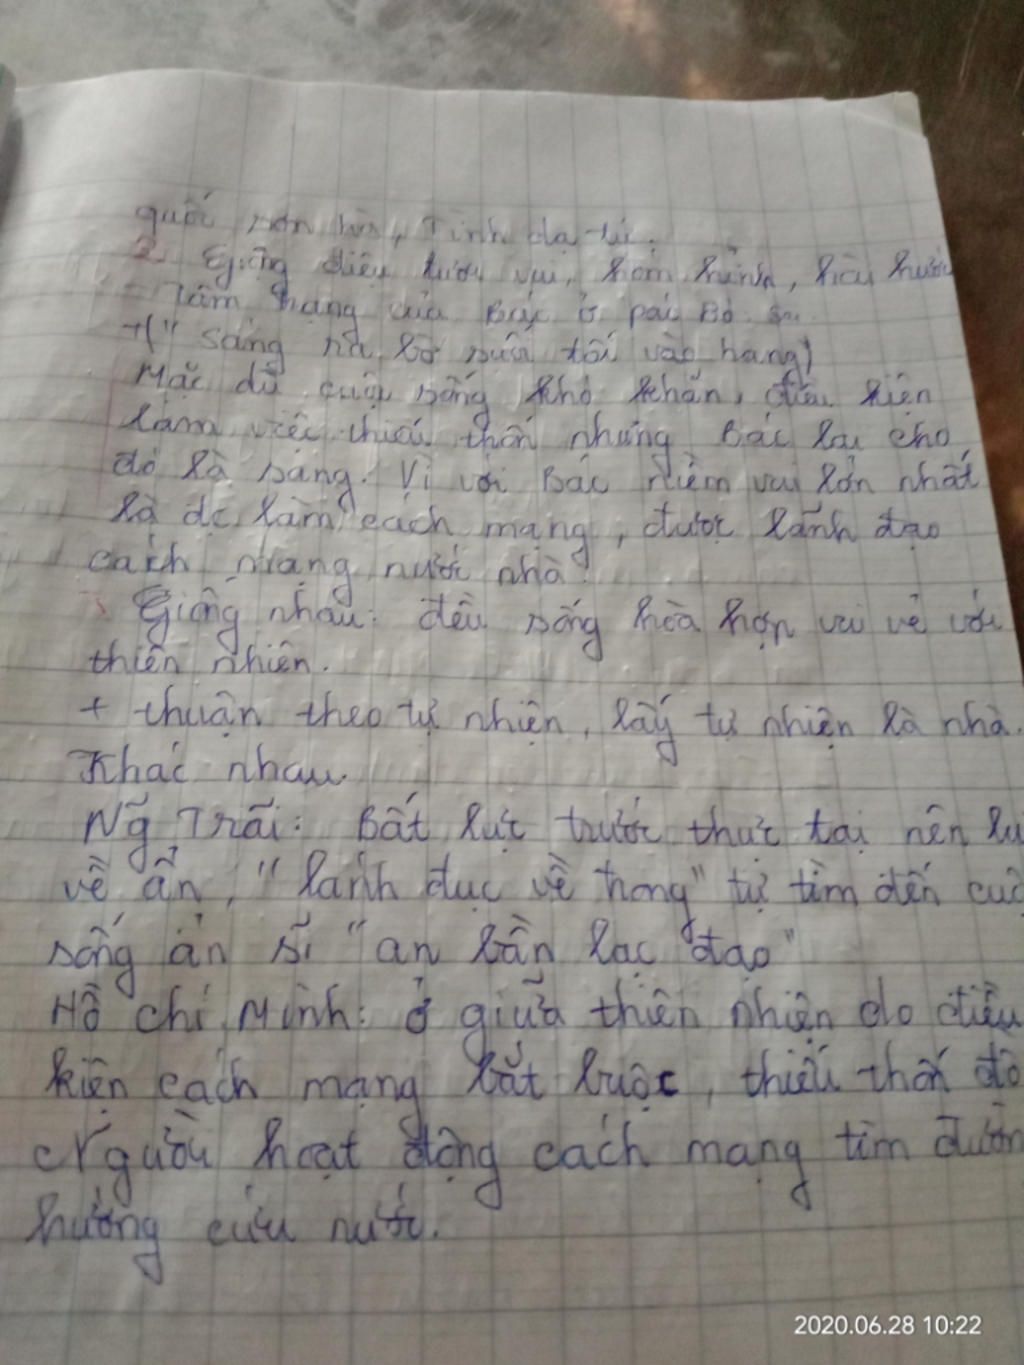 quốc sơn hà, Tĩnh dạ tứ.
2 Giọng điệu tươi vui, hóm hỉnh, hài hước
- Tâm trạng của Bác ở pác Bó
+(" Sáng ra bờ suối tối vào hang)
Mặc dù cuộc sống khó khăn, điều kiện
làm việc thiếu thốn nhưng Bác lại cho
đó là sáng. Vì với Bác niềm vui lớn nhất
là đc làm cách mạng, được lãnh đạo
cách mạng nước nhà.
3 Giống nhau: đều sống hòa hợp vui vẻ với
thiên nhiên.
+ thuận theo tự nhiên, lấy tự nhiên là nhà.
Khác nhau.
Ng Trãi: Bất lực trước thực tại nên lu
về ẩn, "lánh đục về trong" tự tìm đến cuộ
sống ẩn sĩ "an bần lạc đạo"
Hồ chí Minh: ở giữa thiên nhiên do điều
kiện cách mạng bắt buộc, thiếu thốn đó
Người hoạt động cách mạng tìm đườn
hướng cứu nước.
2020.06.28 10:22